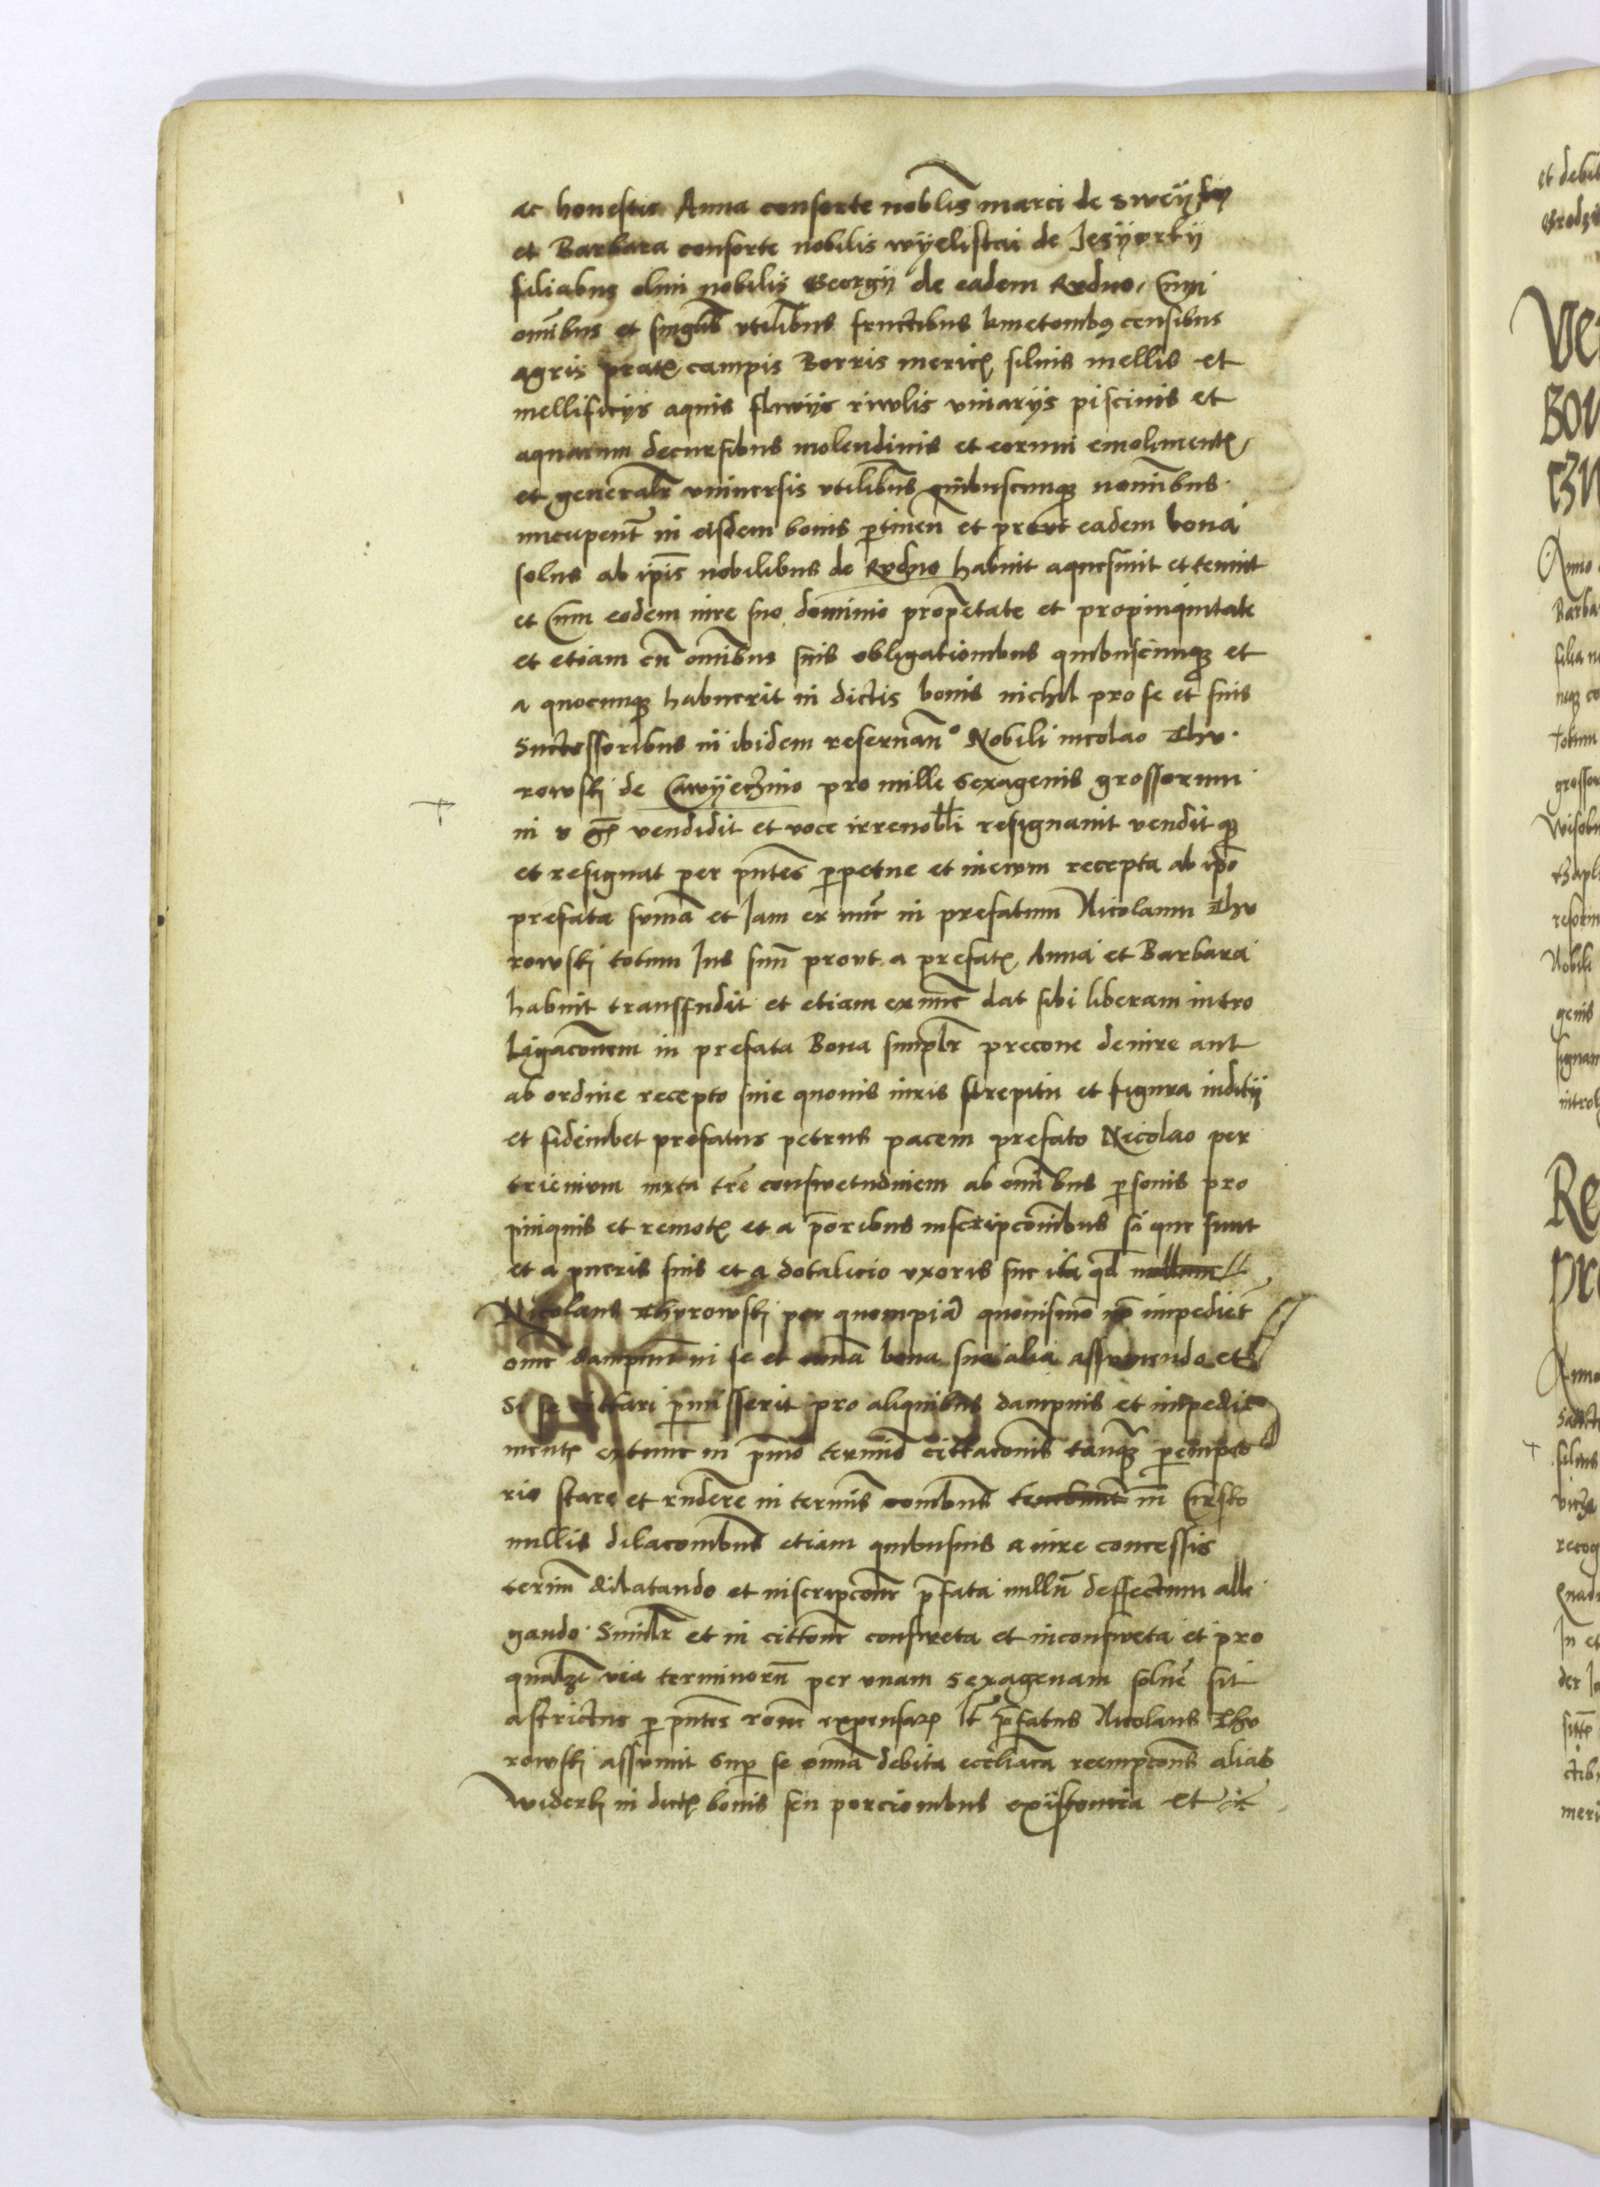 ac honestis Anna consorte noblis marci de
et Barbara consorte nobilis wyelislai de Jesyorky
filiabus olim nobilis Georgij de eadem Rudno, Cum
omibus et singulis utilibus fructibus kmetombus censibus
agris prat campis Borris meric silvis mellis et
mellificijs aquis fluvijs rivulis vivariis piscinis et
aquarum decursibus molendinis et eorum emoliment
et generalr universis utilibus quibuscunque nomibus
nucupent in eisdem bonis ptinen et prout eadem bona
solus ab ipis nobilibus de Rudno habuit aquesivit et tenuit
et Cum eodem iure suo dominio proprietate et propinquitate
et etiam cu omibus suis obligationibus quibuscunque et
a quocunque habuerit in dictis bonis nichil pro se et suis
Successoribus in ibidem reservan Nobili nicolao Thu
rowski de pro mille sexagenis grossorum
in vendidit et voce irrevobli resignavit vendit que
et resignat per pntes perpetue et inevum recepta ab ipo
prefata suma et Jam ex nuc in prefatum Nicolaum Thu
rowski totum Jus suu prout a prefat Anna et Barbara
habuit transfudit et etiam exnuc dat sibi liberam intro
Ligaconem in prefata Bona simplr precone de iure aut
ab ordine recepto sine quovis iuris strepitu et figura iuditij
et fideiubet prefatus petrus pacem prefato Nicolao per
trienium iuxta tre conswetudinem ab omibus psonis pro
pinquis et remot et a prioribus inscripconibus si que sunt
et a pueris suis et a dotalicio uxoris sue ita qd
Nicolaus Thurowski per quempia quovismo no impediet
ome dampnu in se et omia bona sua alia assumendo et
Si se cittari pmisserit pro aliquibus dampnis et impedi
ment extunc in pmo termio cittaconis tanq pempto
rio stare et rndere in termis in Cirsto
nullis dilaconibus etiam quibusvis a iure concessis
termi dilatando et inscripcone pfata nullu deffectum alle
gando Similr et in cittone consweta et inconsweta et pro
qualz via terminoru per unam sexagenam solve sit
astrictus p pntes rone expensar It pfatus Nicolaus Thu
rowski assumit sup se omia debita eccliaca reempcons alias
widerk in dict bonis seu porcionibus existencia et